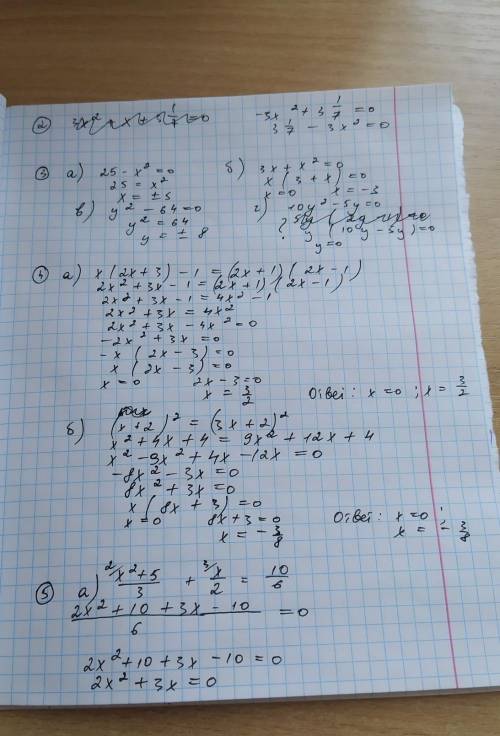 ② 3x² + x + 3 1/7 = 0
-3x² + 3 1/7 = 0
3 1/7 - 3x² = 0
③ а) 25 - x² = 0
25 = x²
x = ± 5
б) 3x + x² = 0
x (3 + x) = 0
x = 0 x = -3
в) y² - 64 = 0
y² = 64
y = ± 8
г) 10y² - 5y = 0
? y (10y - 5y) = 0
y = 0
④ а) x (2x + 3) - 1 = (2x + 1) (2x - 1)
2x² + 3x - 1 = (2x + 1) (2x - 1)
2x² + 3x - 1 = 4x² - 1
2x² + 3x = 4x²
2x² + 3x - 4x² = 0
-2x² + 3x = 0
-x (2x - 3) = 0
x (2x - 3) = 0
x = 0 2x - 3 = 0
x = 3/2
Ответ: x = 0 ; x = 3/2
б) (x + 2)² = (3x + 2)²
x² + 4x + 4 = 9x² + 12x + 4
x² - 9x² + 4x - 12x = 0
-8x² - 3x = 0
8x² + 3x = 0
x (8x + 3) = 0
x = 0 8x + 3 = 0
x = - 3/8
Ответ: x = 0 ;
x = - 3/8
⑤ а) ²/ x² + 5 / 3 + ³/ x / 2 = 10/6
2x² + 10 + 3x - 10 / 6 = 0
2x² + 10 + 3x - 10 = 0
2x² + 3x = 0